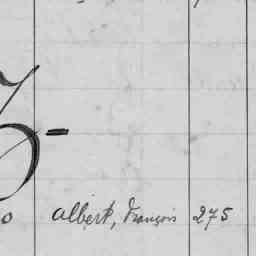 o albert, François 275